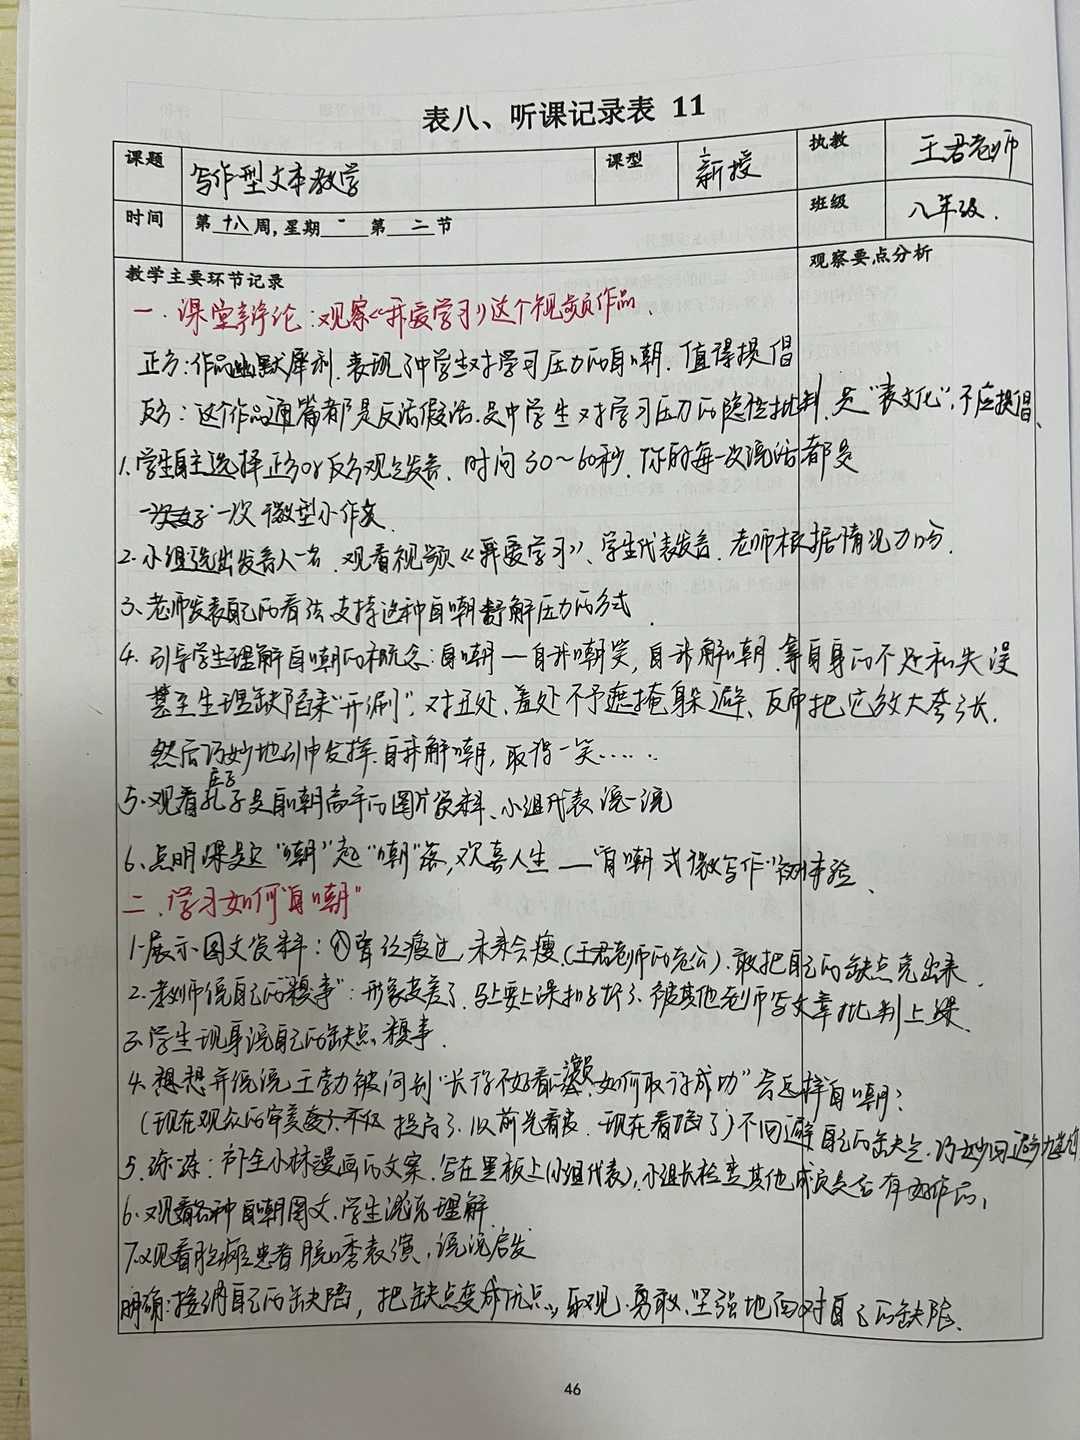 表八、听课记录表 11
课题 写作型文本教学 课型 新授 执教 王君老师
时间 第 十八 周,星期 一 第 二 节 班级 八年级.
教学主要环节记录 观察要点分析
一.课堂辩论:观察《我爱学习》这个视频作品、
正方:作品幽默犀利.表现了中学生对学习压力的自嘲.值得提倡
反方:这个作品通篇都是反话假话.是中学生对学习压力的隐性批判.是"丧文化",不应提倡、
1.学生自主选择正方or反方观点发言、时间50～60秒.你的每一次说话都是
一次微型小作文.
2.小组选出发言人一名.观看视频《我爱学习》、学生代表发言.老师根据情况加分.
3.老师发表自己的看法.支持这种自嘲舒解压力的方式.
4.引导学生理解自嘲的概念:自嘲—自我嘲笑,自我解嘲.拿自身的不足和失误
甚至生理缺陷来"开涮".对丑处、羞处不予遮掩躲避、反而把它放大夸张.
然后巧妙地引申发挥.自我解嘲,取得一笑……
5.观看孔子是自嘲高手的图片资料、小组代表说一说
6.点明课题"嘲"起"嘲"落,欢喜人生—"自嘲式微写作"初体验、
二.学习如何"自嘲"
1.展示图文资料:①曾经瘦过,未来会瘦.(王君老师的老公).敢把自己的缺点亮出来.
2.老师说自己的"糗事":形象太差了.马上要上课扣子坏了.被其他老师写文章批判上课.
3.学生现身说自己的缺点、糗事.
4.想想并说说王勃被问到"长得不好看的演员如何取得成功"会怎样自嘲?
(现在观众的审美提高了.以前光看皮.现在看瓤了)不回避自己的缺点.
5.练一练:补全小林漫画的文案.写在黑板上(小组代表),小组长检查其他成员是否有好作品,
6.观看各种自嘲图文.学生说说理解.
7.观看脑瘫患者脱口秀表演,说说启发
明确:接纳自己的缺陷,把缺点变成优点,乐观、勇敢、坚强地面对自己的缺陷.
46